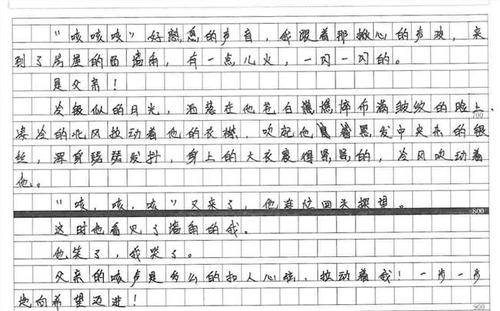 “咳咳咳”好熟悉的声音，我跟着那揪心的声浪，来
到了房屋的西墙角，有一点儿火，一闪一闪的。
是父亲！
冷銀似的月光，洒落在他苍白憔悴布满皱纹的脸上，
凛冷的北风拉动着他的衣襟，吹起他发中夹杂的银
丝，浑身瑟瑟发抖，身上的大衣裹得紧紧的，冷风吹动着
他。
“咳，咳，咳”又来了，他连忙回头探望。
800
这时他看见了墙角的我。
他笑了，我哭了。
父亲的咳声是多么的扣人心弦，拉动着我！一步一步
地向希望迈进！
900